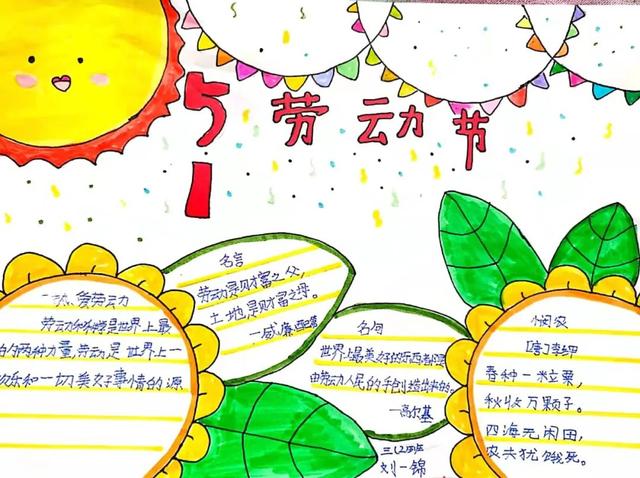 51
劳动节
热爱劳动
劳动和科学是世界上最
的两种力量,劳动是世界上一
切欢乐和一切美好事情的源
名言
劳动是财富之父,
土地是财富之母。
—威廉·配第
名句
世界上最美好的东西都是
由劳动人民的手创造出来的。
—高尔基
三(2)班
刘一锦
悯农
[唐]李绅
春种一粒粟,
秋收万颗子。
四海无闲田,
农夫犹饿死。